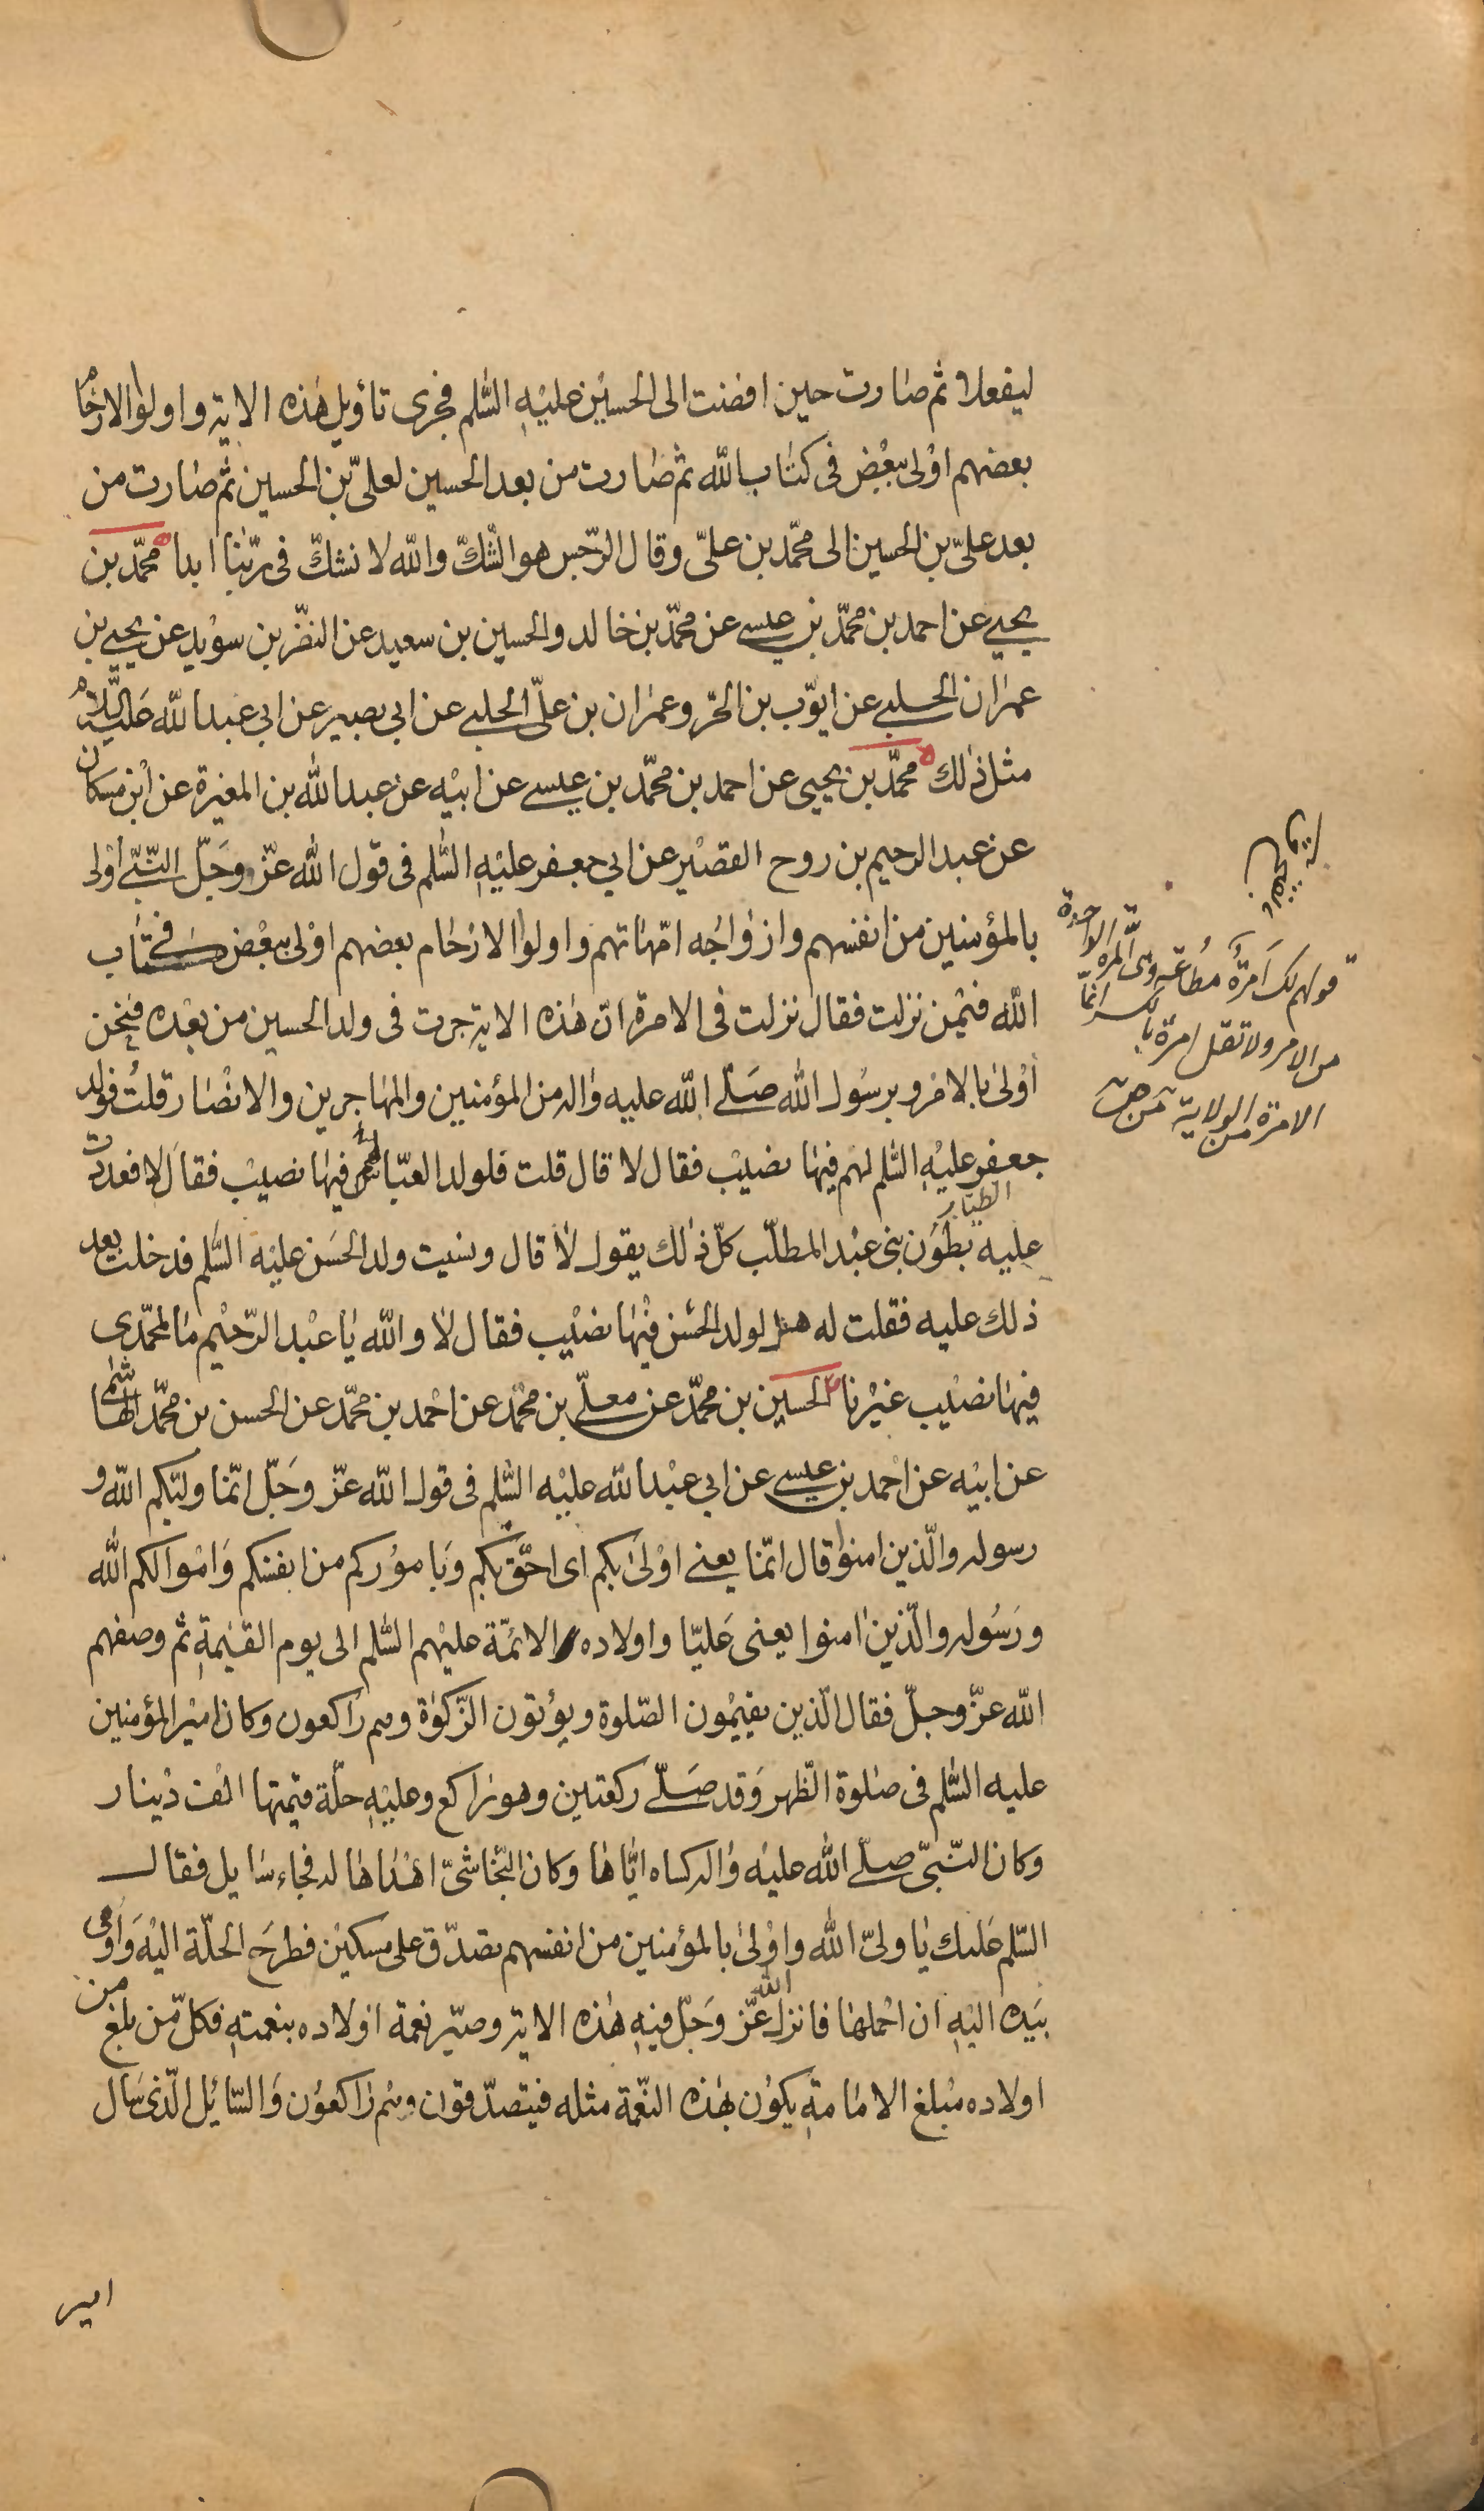 ليفعلا ثم صارت حين افضت الى الحسين عليه السّلم فجرى تاويل هذه الاية واولوا الارحام
بعضهم اولى ببعض فى كتاب الله ثم صارت من بعد الحسين لعلىّ بن الحسين ثم صارت من
بعد علىّ بن الحسين الى محمّد بن علىّ وقال الرّجس هو الشّكّ والله لا نشكّ فى ربّنا ابدا محمّد بن
يحيى عن احمد بن محمّد بن عيسى عن محمّد بن خالد والحسين بن سعيد عن النضر بن سويد عن يحيى بن
عمران الحلبى عن ايّوب بن الحرّ وعمران بن علىّ الحلبى عن ابى بصير عن ابى عبد الله عليه السّلام
مثل ذلك محمّد بن يحيى عن احمد بن محمّد بن عيسى عن ابيه عن عبد الله بن المغيرة عن ابن مسكان
عن عبد الرحيم بن روح القصير عن ابى جعفر عليه السّلم فى قول الله عزّ وجلّ النّبىّ اولى
بالمؤمنين من انفسهم وازواجه امّهاتهم واولوا الارحام بعضهم اولى ببعض فى كتاب
الله فيمن نزلت فقال نزلت فى الامرة انّ هذه الاية جرت فى ولد الحسين من بعده فنحن
اولى بالامر وبرسول الله صلّى الله عليه واله من المؤمنين والمهاجرين والانصار قلت فولد
جعفر عليه السّلم لهم فيها نصيب فقال لا قال قلت فلولد العبّاس فيها نصيب فقال لا فعددت
الطيّار
عليه بطون بنى عبد المطلّب كلّ ذلك يقول لا قال ونسيت ولد الحسن عليه السّلم فدخلت بعد
ذلك عليه فقلت له هل لولد الحسن فيها نصيب فقال لا والله يا عبد الرّحيم ما لمحمّدى
فيها نصيب غيرنا الحسين بن محمّد عن معلّى بن محمّد عن احمد بن محمّد عن الحسن بن محمّد الهاشمى
عن ابيه عن احمد بن عيسى عن ابى عبد الله عليه السّلم فى قول الله عزّ وجلّ انّما وليّكم الله و
رسوله والّذين امنوا قال انّما يعنى اولى بكم اى احقّ بكم وباموركم من انفسكم واموالكم الله
ورسوله والّذين امنوا يعنى عليّا واولاده الائمّة عليهم السّلم الى يوم القيمة ثم وصفهم
الله عزّ وجلّ فقال الّذين يقيمون الصّلوة ويؤتون الزّكوة وهم راكعون وكان امير المؤمنين
عليه السّلم فى صلوة الظّهر وقد صلّى ركعتين وهو راكع وعليه حلّة قيمتها الف دينار
وكان النّبىّ صلّى الله عليه واله كساه ايّاها وكان النّجاشىّ اهداها له فجاء سايل فقال
السّلم عليك يا ولىّ الله واولى بالمؤمنين من انفسهم تصدّق على مسكين فطرح الحلّة اليه واومى
بيده اليه ان احملها فانزل الله عزّ وجلّ فيه هذه الاية وصيّر نعمة اولاده بنعمته فكلّ من بلغ من
اولاده مبلغ الامامة يكون بهذه النّعمة مثله فيتصدّقون وهم راكعون والسّائل الّذى سال
قولهم لك امرة مطاعة وهى المرّة الواحدة
من الامر ولا تقل امرة بالكسر انما
الامرة من الولاية ص
امير